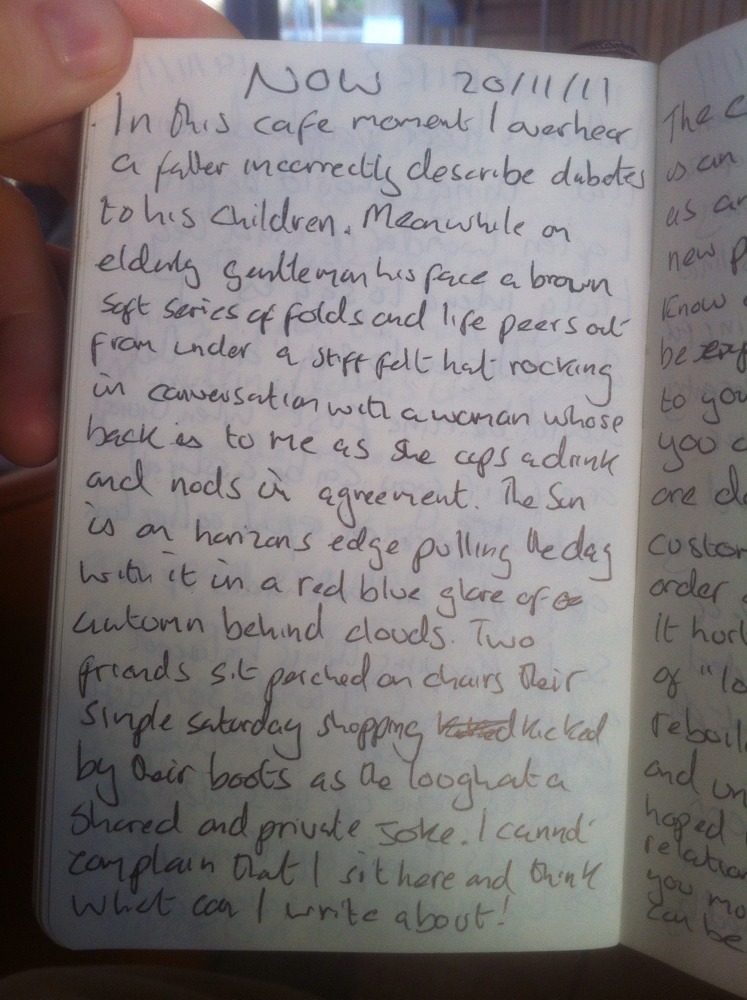 NOW 20/11/11
In this cafe moment I overhear
a father incorrectly describe diabetes
to his children. Meanwhile an
elderly gentleman his face a brown
soft series of folds and life peers out
from under a stiff felt hat rocking
in conversation with a woman whose
back is to me as she cups a drink
and nods in agreement. The Sun
is on horizons edge pulling the day
with it in a red blue glare of
autumn behind clouds. Two
friends sit perched on chairs their
single saturday shopping kicked
by their boots as the laugh at a
shared and private joke. I cannot
complain that I sit here and think
what can I write about!
The C
is an
as an
new p
know
be
to you
you c
are do
custom
order
it hor
of "lo
reboil
and un
hoped
relation
you mo
can be